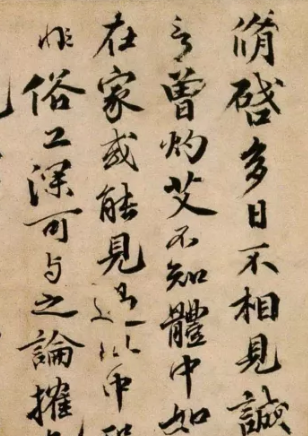 脩啓多日不相見誠
言曾灼艾不知體中如
在家或能見過此中
非俗工深可与之論搉